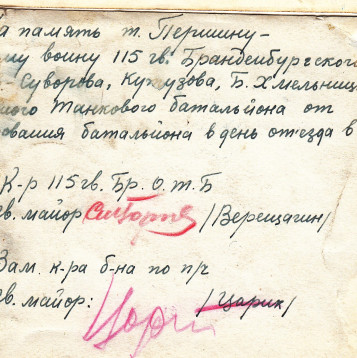 а память т. Першину-
му воину 115 гв. Бранденбургского
Суворова, Кутузова, Б. Хмельниц
ного Танкового батальона от
ования батальона в день отъезда в
К-р 115 гв. Бр. О. Т. Б
гв. майор /Верещагин/
Зам. к-ра б-на по п/ч
гв. майор: /Царик/